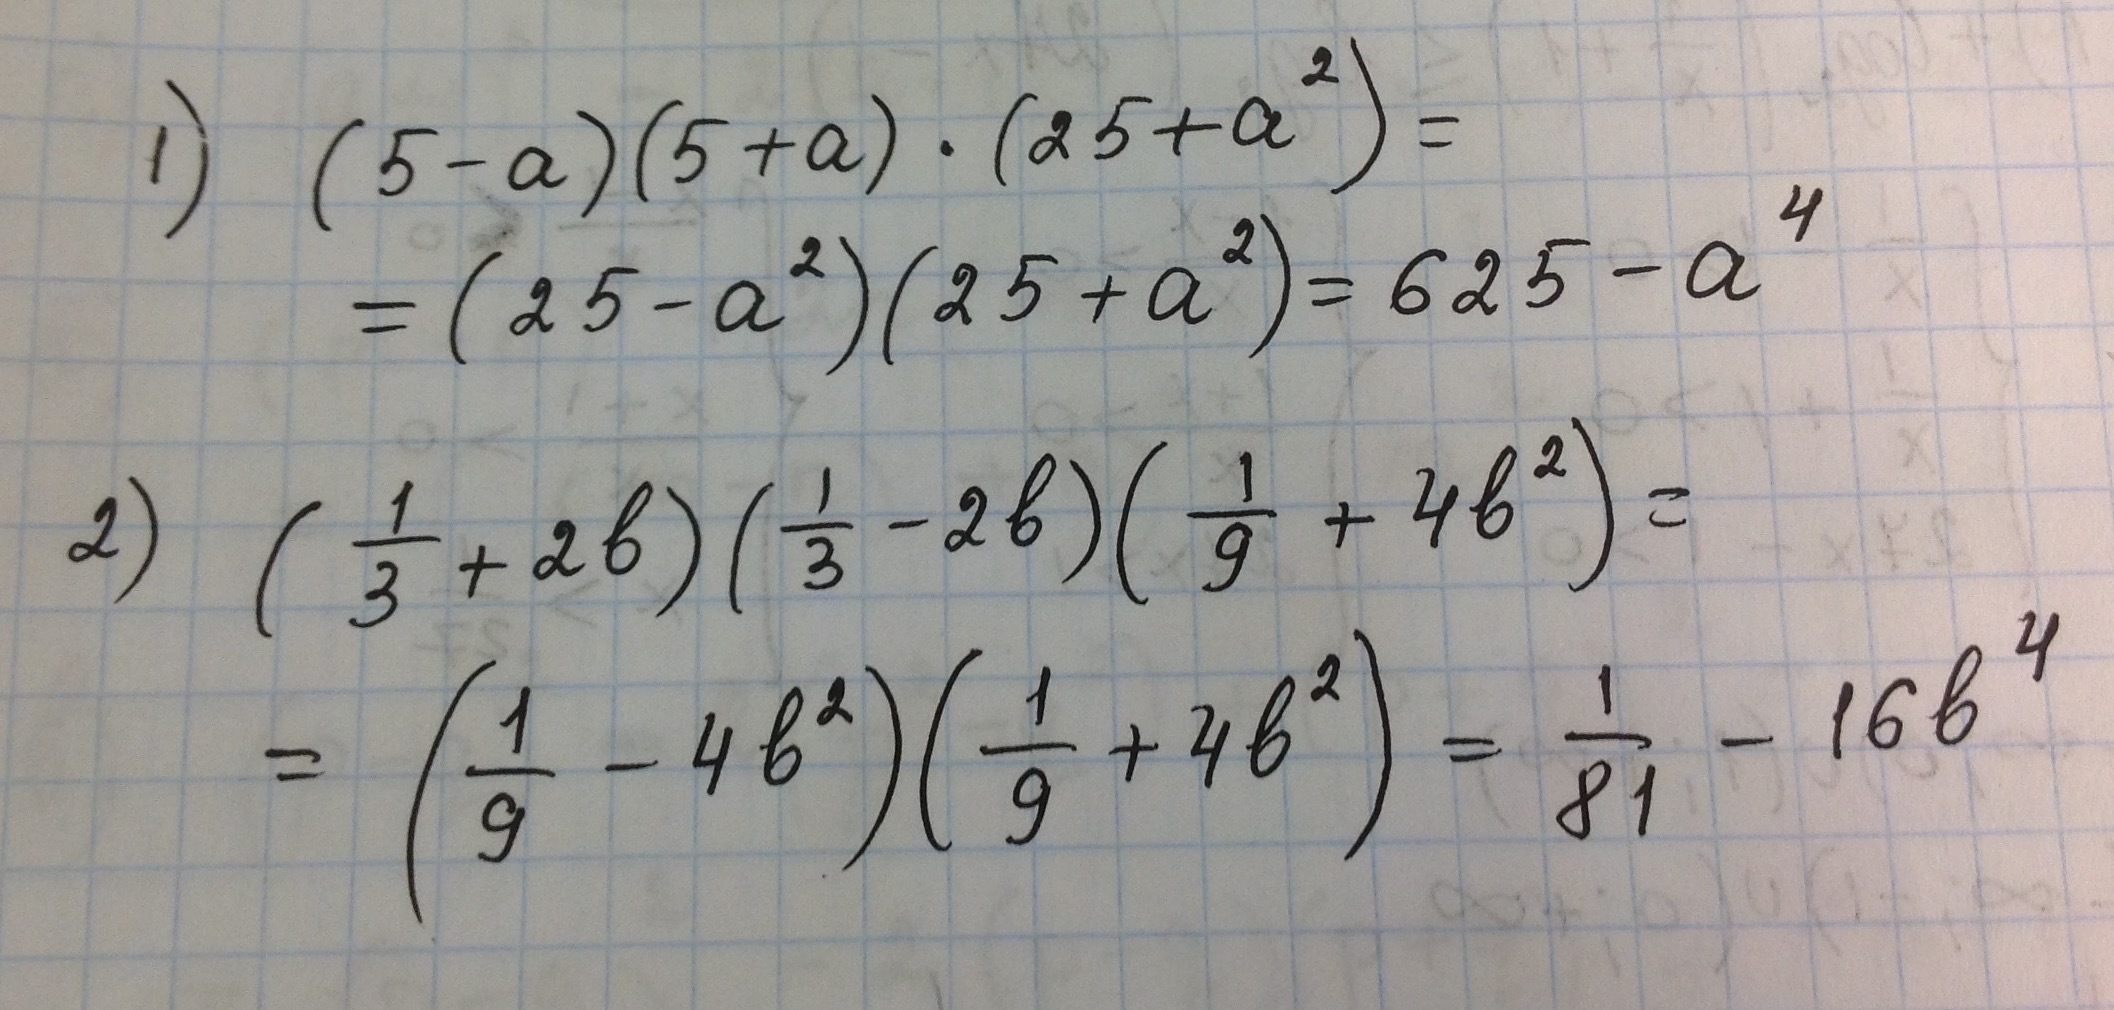 1) (5-a)(5+a)·(25+a²)=
=(25-a²)(25+a²)=625-a⁴
2) (1/3+2b)(1/3-2b)(1/9+4b²)=
=(1/9-4b²)(1/9+4b²)=1/81-16b⁴